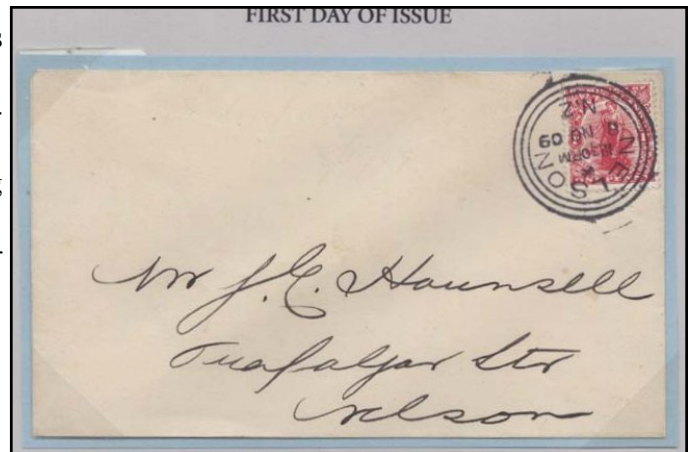 FIRST DAY OF ISSUE
NELSON
N.Z
8 NO 09
1030PM
Mr J. C. Hounsell
Trafalgar Str
Nelson